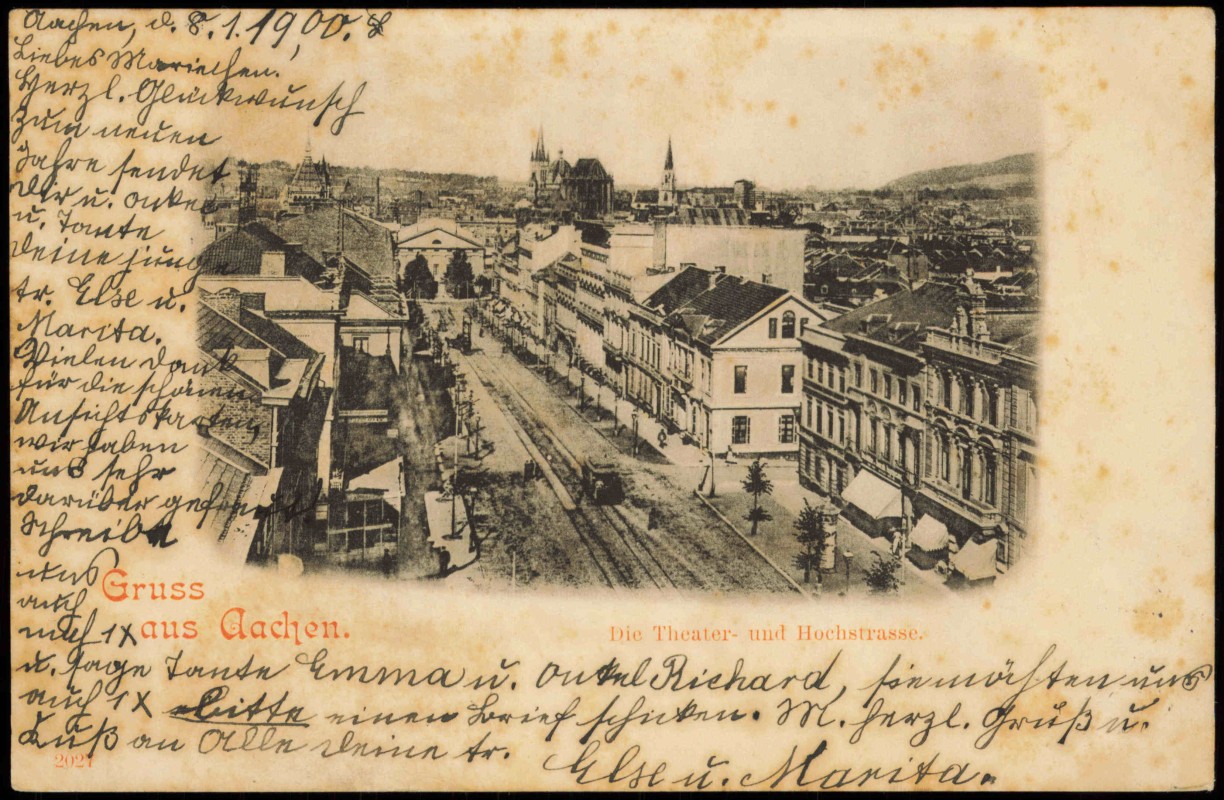 Aachen, d. 8.1.1900.
Liebes Mariechen.
Herzl. Glückwunsch
zum neuen
Jahre sendet
Dir u. Onkel
u. Tante
Deine junge
tr. Else u.
Marita.
Vielen Dank
für die schönen
Ansichtskarten,
wir haben
uns sehr
darüber gefreut
Schreibt
uns
auch
mal 1X
Gruss
aus Aachen.
Die Theater- und Hochstrasse.
u. sage Tante Emma u. Onkel Richard, sie möchten uns
auch 1X bitte einen Brief schicken. M. herzl. Gruß u.
Kuß an Alle Deine tr.
Else u. Marita.